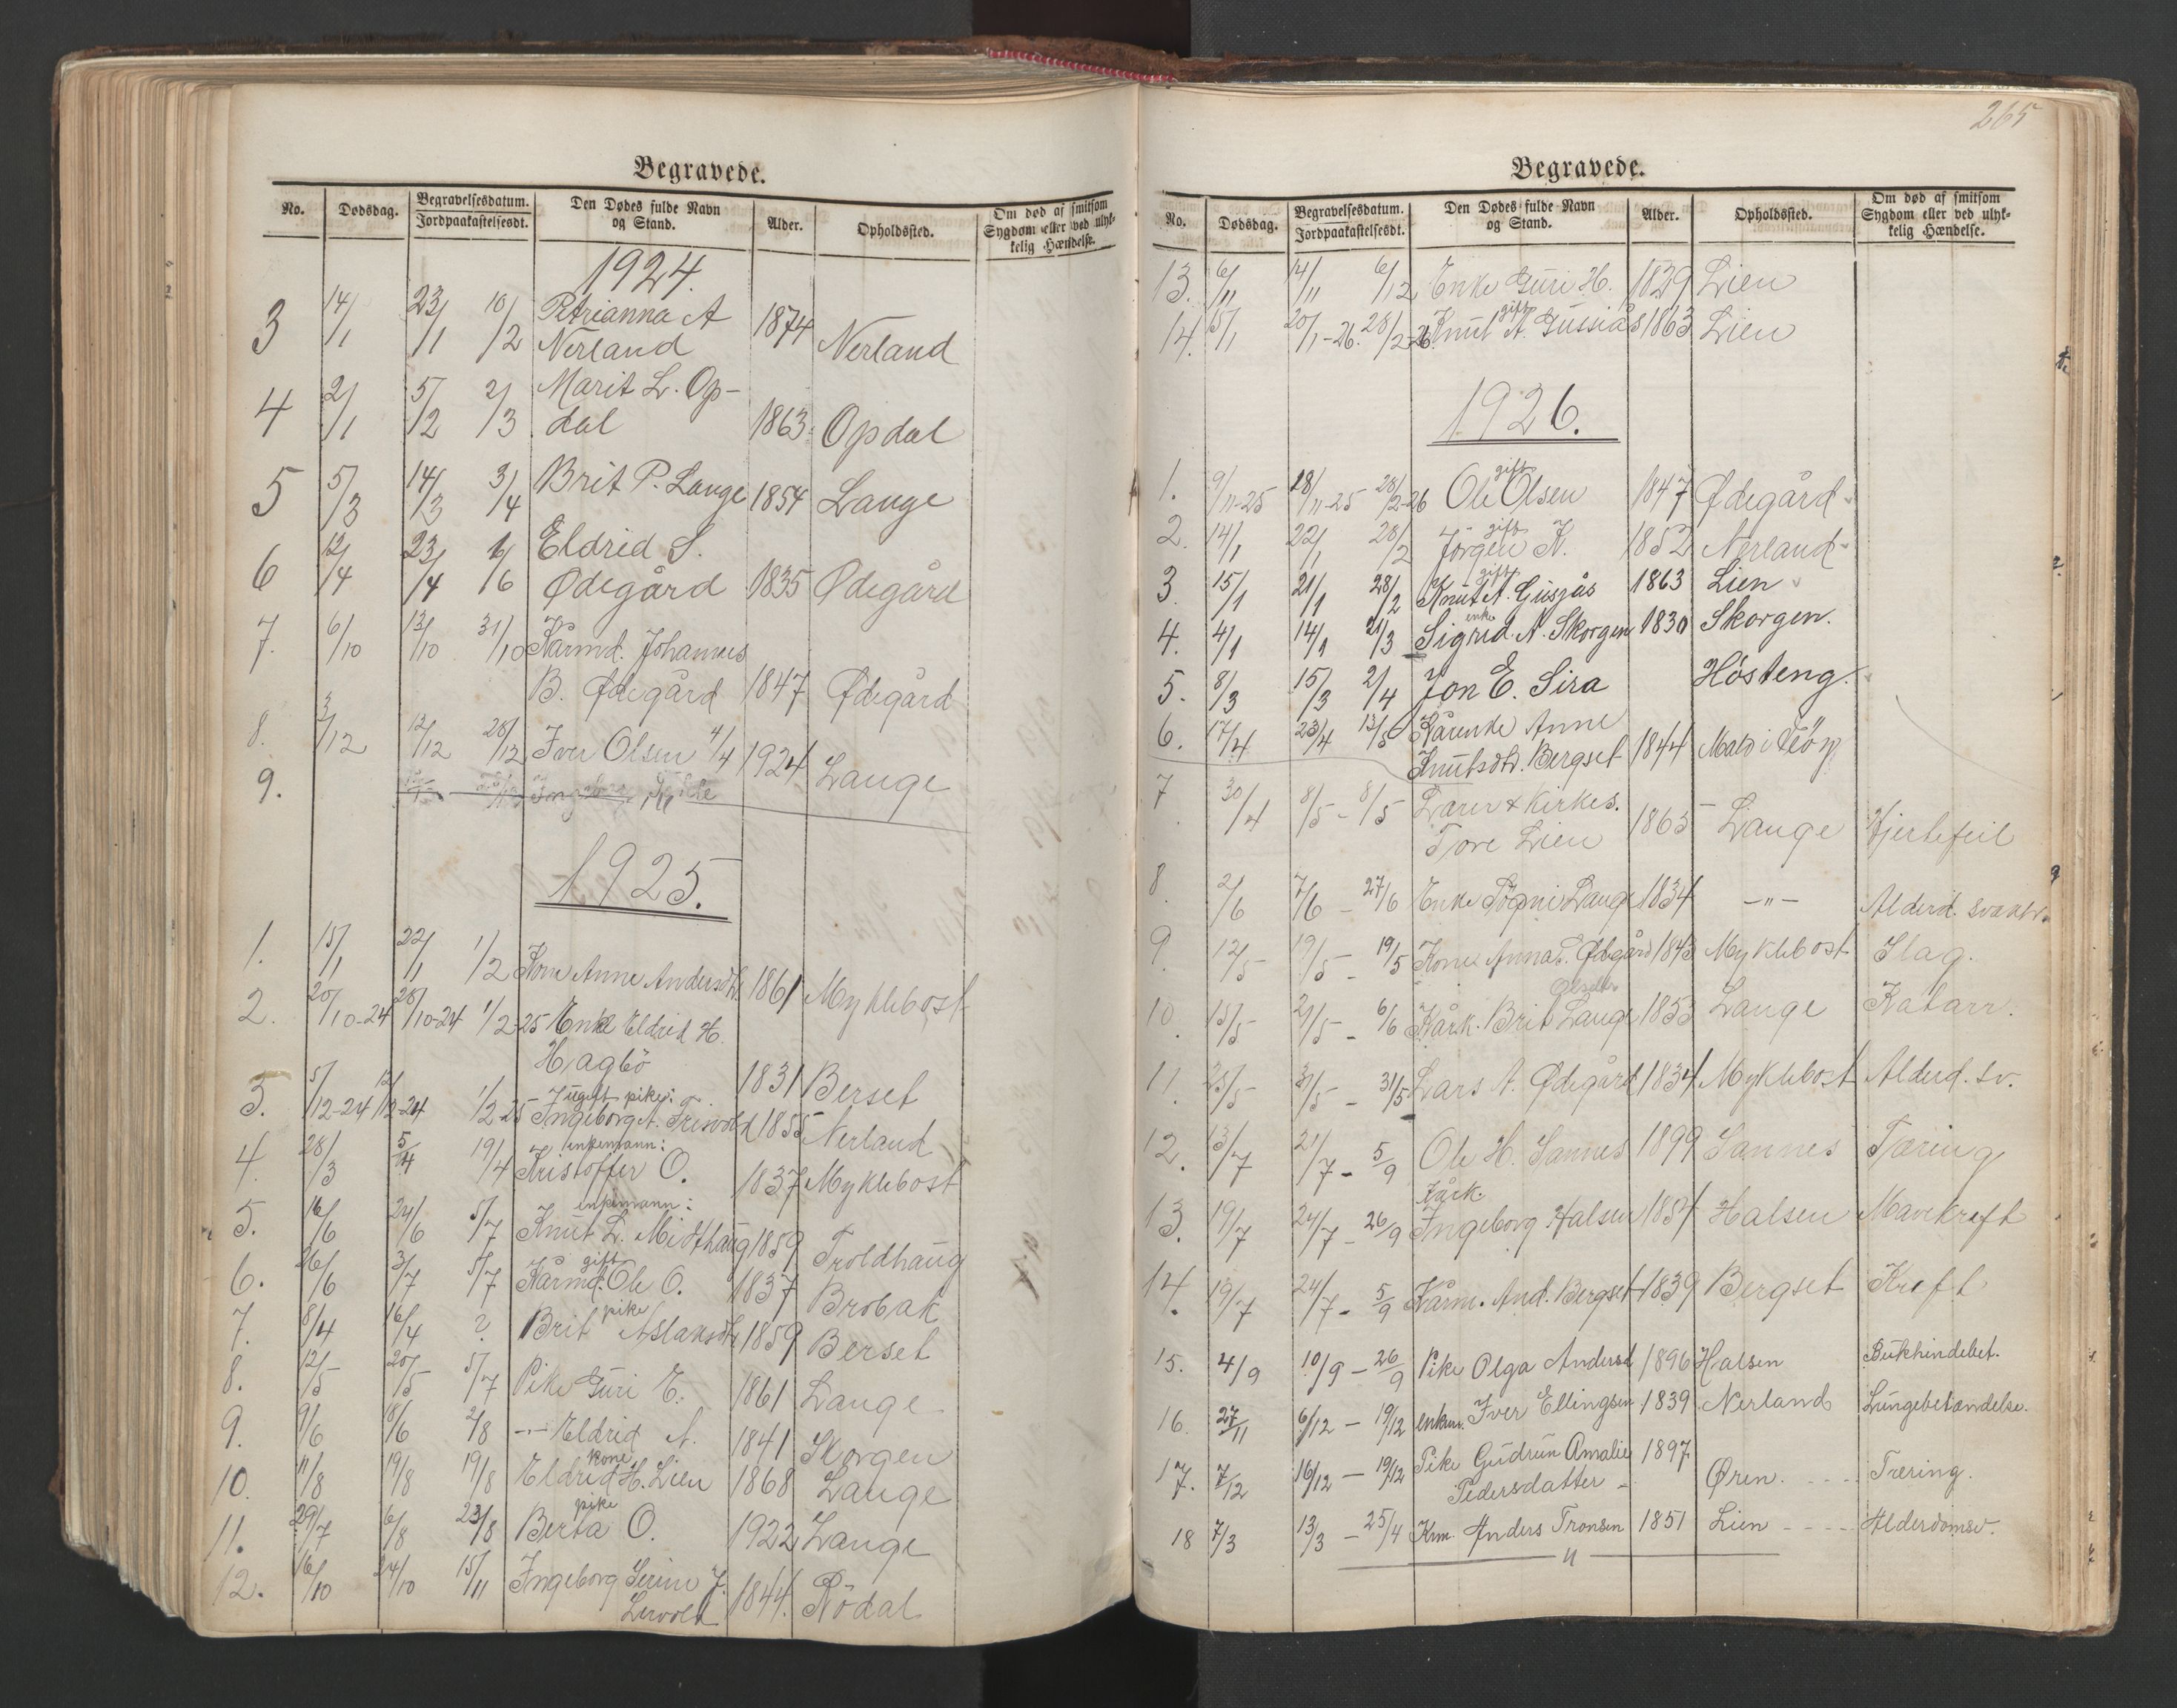 Begravede.
No. Dødsdag. Begravelsesdatum. Jordpaakastelsesdt. Den Dødes fulde Navn og Stand. Alder. Opholdssted. Om død af smitsom Sygdom eller ved ulykkelig Hændelse.
1924.
3 14/1 23/1 10/2 Petrianna A
Nerland 1874 Nerland
4 2/1 5/2 2/3 Marit L. Op-
dal 1863 Opdal
5 5/3 14/3 3/4 Brit P. Lange 1854 Lange
6 12/4 23/4 1/6 Eldrid S.
Ødegård 1835 Ødegård
7. 6/10 13/10 31/10 Kårmd. Johannes
B. Ødegård 1847 Ødegård
8. 3/12 12/12 28/12 Iver Olsen 4/4 1924 Lange
9.
1925.
1. 15/1 22/1 1/2 Kone Anne Andersdtr. 1861 Myklebost
2. 20/10-24 28/10-24 1/2-25 Enke Eldrid H.
Hagbö 1831 Berset
3. 5/12-24 12/12-24 1/2-25 ugift pike:
Ingeborg A. Trisvold 1855 Nerland
4. 28/3 5/4 19/4 enkemann:
Kristoffer O. 1837 Myklebost
5. 16/6 24/6 5/7 enkemann:
Knut L. Midthaug 1859 Troldhaug
6. 26/6 3/7 5/7 gift
Kårmd. Ole O. 1837 Brobak
7. 8/4 16/4 ? pike
Brit Aslaksdtr 1859 Berset
8. 12/5 20/5 5/7 Pike Guri E. 1861 Lange
9. 9/6 18/6 2/8 -"- Eldrid A. 1841 Skorgen
10. 11/8 19/8 19/8 kone
Eldrid H. Lien 1868 Lange
11. 29/7 6/8 23/8 pike
Berta O. 1922 Lange
12. 16/10 24/10 15/11 Ingeborg Serine J.
Lervold 1844. Rödal
265
Begravede.
No. Dødsdag. Begravelsesdatum. Jordpaakastelsesdt. Den Dødes fulde Navn og Stand. Alder. Opholdssted. Om død af smitsom Sygdom eller ved ulykkelig Hændelse.
13. 6/11 14/11 6/12 Enke Guri H. 1839 Lien
14. 15/1 20/1-26. 28/2-26 gift
Knut A. Gussiås 1863 Lien
1926.
1. 9/11-25 18/11-25 28/2-26 gift
Ole Olsen 1847 Ødegård
2. 14/1 22/1 28/2 gift
Jörgen K. 1852 Nerland
3. 15/1 21/1 28/2 gift
Knut A. Gusjås 1863 Lien
4. 4/1 14/1 21/3 enke
Sigrid. A. Skorgen 1830 Skorgen.
5. 8/3 15/3 2/4 Jon E. Sira Hösteng.
6. 17/4 23/4 13/5 Kårenke Anne
Knutsdtr. Bergset 1844
7 30/4 8/5 - 8/5 Lærer & Kirkes.
Tore Lien 1863 Lange Hjertefeil
8. 2/6 7/6 - 27/6 Enke Lange 1834 -"- Alderd. svakh.
9. 12/5 19/5 - 19/5 Kone Anna Ødegård 1843 Myklebost Slag.
Olsdtr.
10. 15/5 21/5 - 6/6 Kårk. Brit Lange 1853 Lange Katarr.
11. 25/5 31/5 - 31/5 Lars A. Ødegård 1834 Myklebost Alderd. sv.
12. 13/7 21/7 - 5/9 Ole H. Sannes 1899 Sannes Tæring
13. 19/7 24/7 - 26/9 Kårk.
Ingeborg Halsen 1851 Halsen Mavekreft
14. 19/7 24/7 - 5/9 Kårm. And. Bergset 1839 Bergset Kreft
15. 4/9 10/9 - 26/9 Pike Olga Andersd 1896 Halsen Bukhindebet.
16. 27/11 6/12 - 19/12 enkem. Iver Ellingsen 1839 Nerland Lungebetændelse.
17. 7/12 16/12 - 19/12 Pike Gudrun Amalie 1897
Pedersdatter - Øren. - - - - Tæring.
18 7/3 13/3 - 25/4 Krm Anders Tronsen 1851 Lien - - - - Alderdomsv.